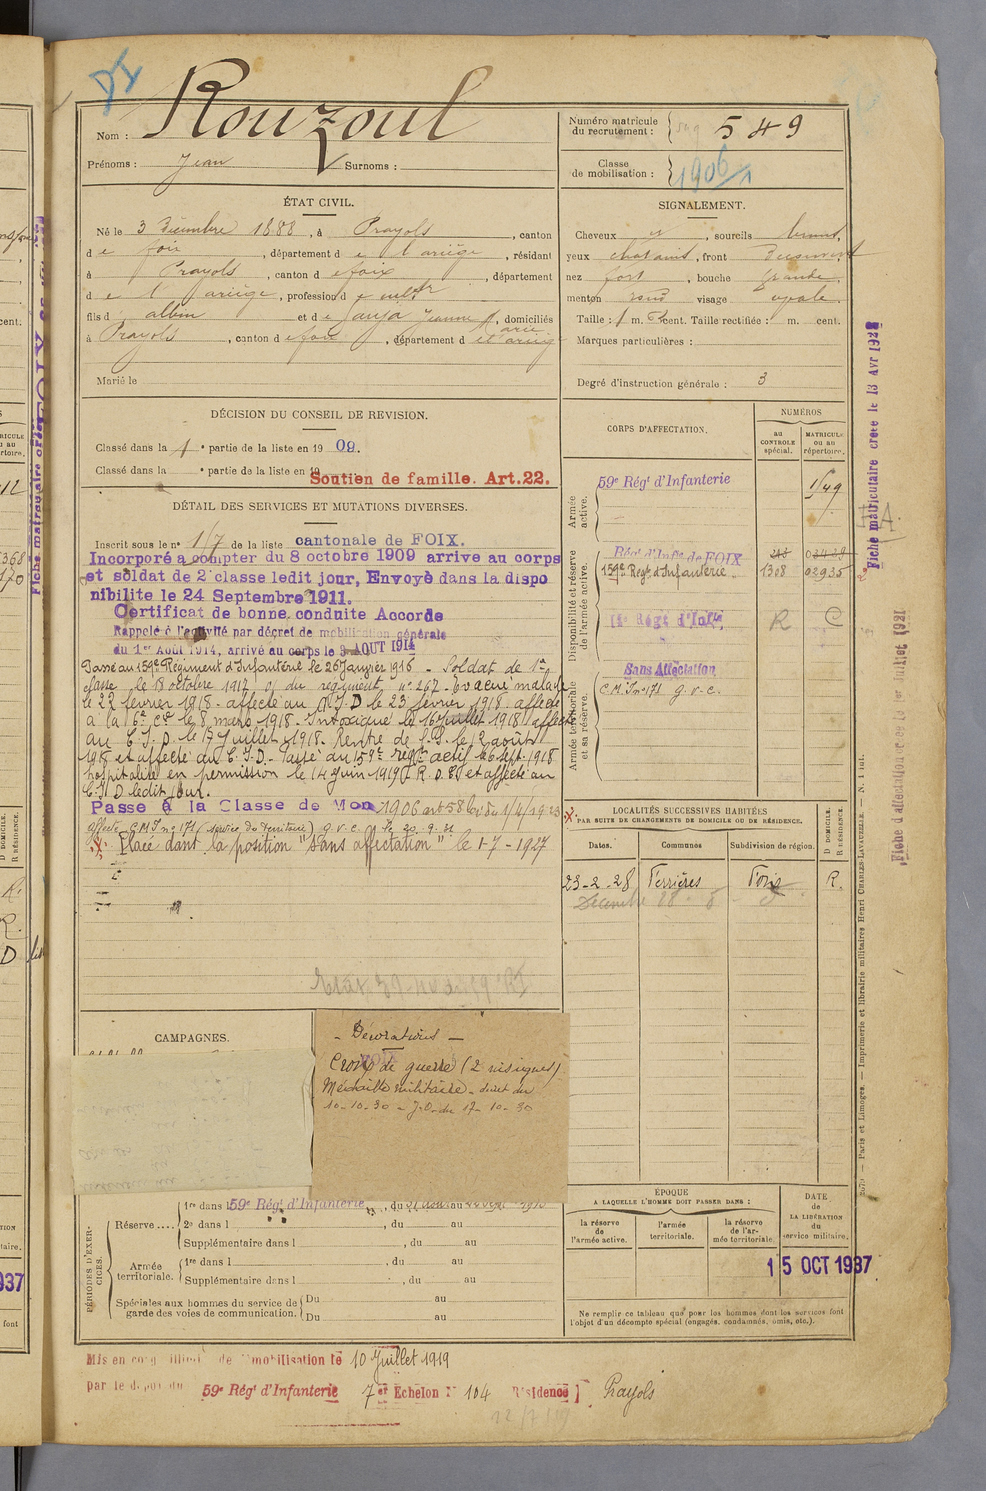 Nom : Rouzoul
Prénoms : Jean Surnoms :
Numéro matricule du recrutement : 549
Classe de mobilisation : 1906
ÉTAT CIVIL.
Né le 3 Décembre 1888, à Prayols, canton
de foix, département de l'ariège, résidant
à Prayols, canton de foix, département
de l'ariège, profession de cultr
fils d albin et de Jauja Jeanne Marie, domiciliés
à Prayols, canton de foix, département de l'ariège
Marié le
SIGNALEMENT.
Cheveux et, sourcils bruns,
yeux chatains, front découvert
nez fort, bouche grande,
menton rond visage ovale.
Taille : 1 m. cent. Taille rectifiée : m. cent.
Marques particulières :
Degré d'instruction générale : 3
DÉCISION DU CONSEIL DE REVISION.
Classé dans la 1e partie de la liste en 1909.
Classé dans la e partie de la liste en 19
Soutien de famille. Art. 22.
DÉTAIL DES SERVICES ET MUTATIONS DIVERSES.
Inscrit sous le n° 17 de la liste cantonale de FOIX.
Incorporé à compter du 8 octobre 1909 arrive au corps
et soldat de 2e classe ledit jour, Envoyé dans la dispo
nibilite le 24 Septembre 1911.
Certificat de bonne conduite Accorde
Rappelé à l'activité par décret de mobilisation générale
du 1er Août 1914, arrivé au corps le 3 AOUT 1914
Passé au 159e Régiment d'Infanterie le 26 Janvier 1916 - Soldat de 1ère
classe le 18 octobre 1917 du régiment n° 267. Evacué malade
le 22 février 1918 - affecté au C.I.D le 23 février 1918 affecté
à la 6e Cie le 8 mars 1918. Intoxiqué le 16 Juillet 1918 affecté
au C.I.D. le 17 Juillet 1918. Rentré de le 2 août
1918 et affecté au C.I.D. Passé au 159e régt actif le 6 sept. 1918
hospitalisé en permission le 14 Juin 1919 et affecté au
C.I.D ledit jour.
Passé à la Classe de Mon 1906 art 58 Loi du 1/4/1923
affecté C.M.I n° 171 (service du Territoire) g.v.c. le 20.9.31
Placé dans la position "Sans affectation" le 1-7-1927
CORPS D'AFFECTATION.
NUMÉROS
au CONTROLE spécial.
MATRICULE ou au répertoire.
Armée active.
59e Régt d'Infanterie 1549
Disponibilité et réserve de l'armée active.
Régt d'Infie de FOIX
159e Régt d'Infanterie 1308 02935
Régt d'Infie R C
Armée territoriale et sa réserve.
Sans Affectation
C.M.I n° 171 g.v.c.
LOCALITÉS SUCCESSIVES HABITÉES
PAR SUITE DE CHANGEMENTS DE DOMICILE OU DE RÉSIDENCE.
Dates. Communes Subdivision de région. D DOMICILE. R RÉSIDENCE.
23-2-28 Ferrières Foix R.
Décembre
CAMPAGNES.
- Décorations -
Croix de guerre (2 insignes)
Médaille militaire - décret du
10-10-30 - J.O. du 17-10-30
PÉRIODES D'EXERCICES.
Réserve....
1re dans l 59e Régt d'Infanterie, du au
2e dans l , du au
Supplémentaire dans l , du au
Armée territoriale.
1re dans l , du au
Supplémentaire dans l , du au
Spéciales aux hommes du service de garde des voies de communication.
Du au
Du au
ÉPOQUE
A LAQUELLE L'HOMME DOIT PASSER DANS :
la réserve de l'armée active.
l'armée territoriale.
la réserve de l'armée territoriale.
DATE de LA LIBÉRATION du service militaire.
15 OCT 1937
Ne remplir ce tableau que pour les hommes dont les services font
l'objet d'un décompte spécial (engagés, condamnés, omis, etc.).
Mis en congé illimité de démobilisation le 10 Juillet 1919
par le dépôt du 59e Régt d'Infanterie 7er Echelon N° 104 Résidence Prayols
Fiche matriculaire créée le 13 Avr 1928
Fiche d'affectation créée le 1er Juillet 1921
Paris et Limoges. — Imprimerie et librairie militaires Henri CHARLES-LAVAUZELLE.